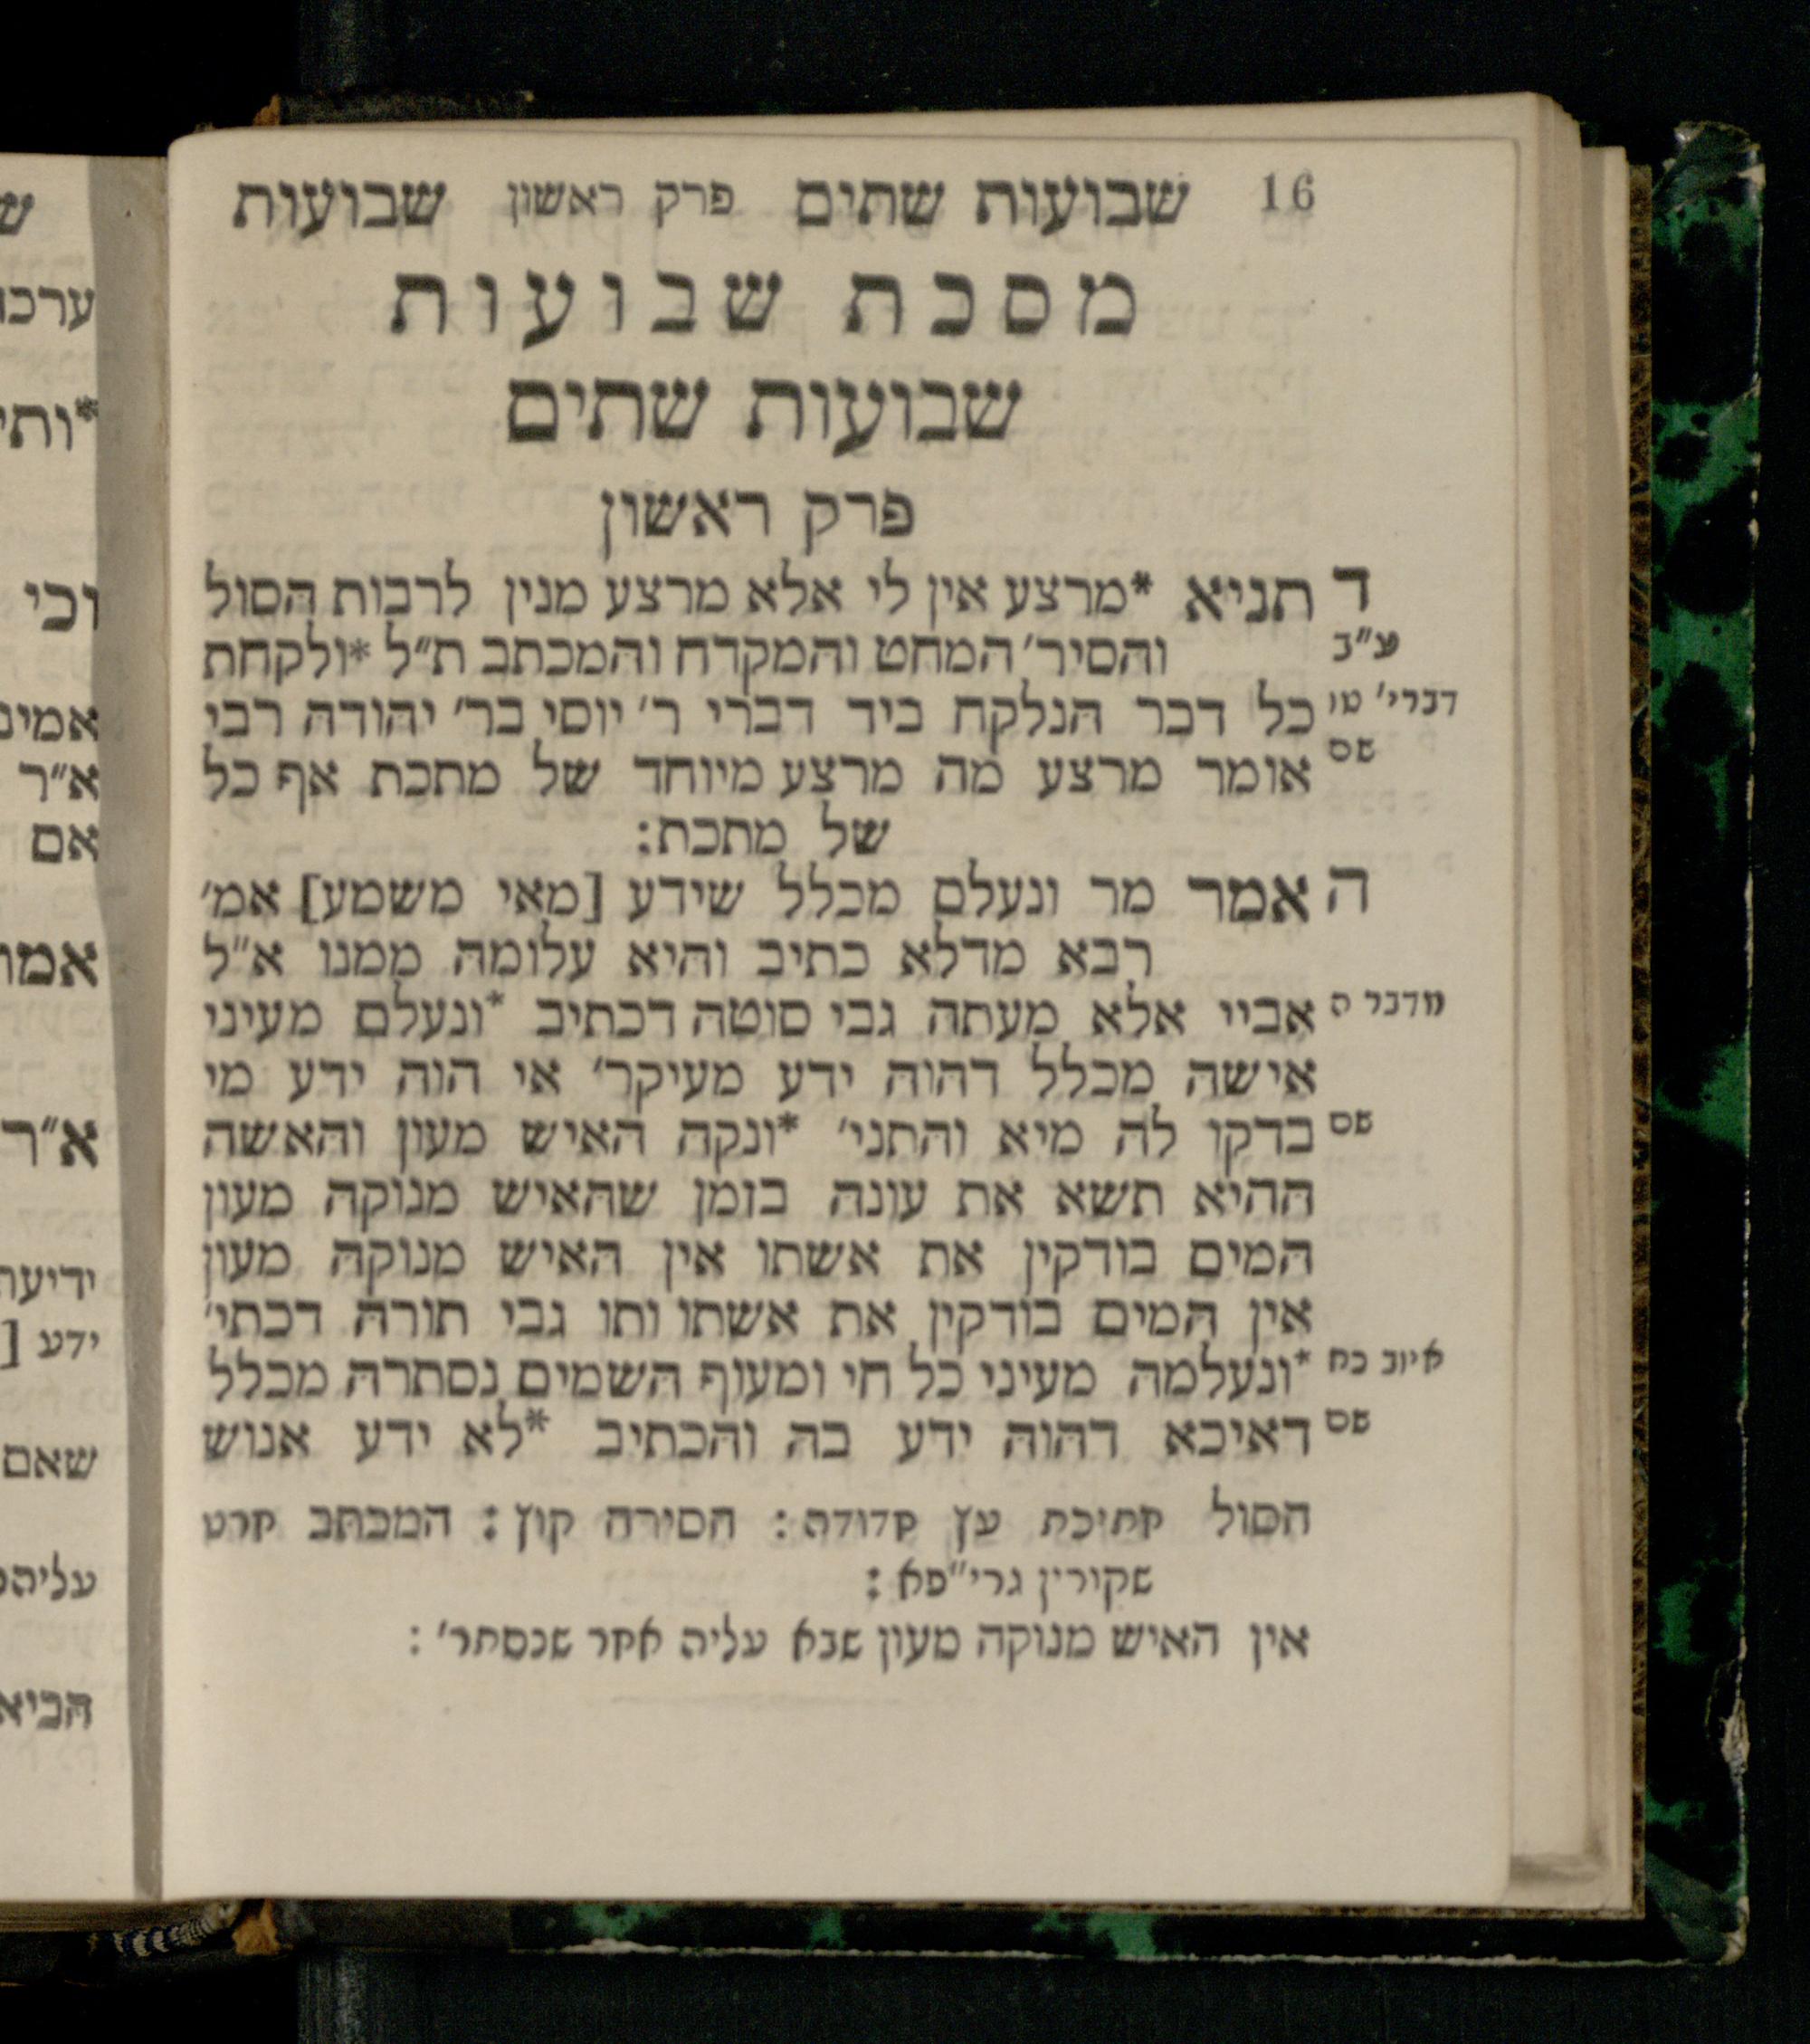 16 שבועות שתים פרק ראשון שבועות
מסכת שבועות
שבועות שתים
פרק ראשון
ד תניא *מרצע אין לי אלא מרצע מנין לרבות הסול
ע״ב והסיר׳ המחט והמקדח והמכתב ת״ל *ולקחת
דברי׳ טו כל דבר הנלקח ביד דברי ר׳ יוסי בר׳ יהודה רבי
שם אומר מרצע מה מרצע מיוחד של מתכת אף כל
של מתכת:
ה אמר מר ונעלם מכלל שידע [מאי משמע] אמ׳
רבא מדלא כתיב והיא עלומה ממנו א״ל
מדבר ה אביי אלא מעתה גבי סוטה דכתיב *ונעלם מעיני
אישה מכלל דהוה ידע מעיקר׳ אי הוה ידע מי
שם בדקו לה מיא והתני׳ *ונקה האיש מעון והאשה
ההיא תשא את עונה בזמן שהאיש מנוקה מעון
המים בודקין את אשתו אין האיש מנוקה מעון
אין המים בודקין את אשתו ותו גבי תורה דכתי׳
איוב כח *ונעלמה מעיני כל חי ומעוף השמים נסתרה מכלל
שם דאיכא דהוה ידע בה והכתיב *לא ידע אנוש
הסול חתיכת עץ חדודה: הסירה קוץ: המכתב חרט
שקורין גרי״פא:
אין האיש מנוקה מעון שבא עליה אחר שנסתר׳:
ערכו
*ותי
וכי
א״ר
אם
א״ר
ידע [
שאם